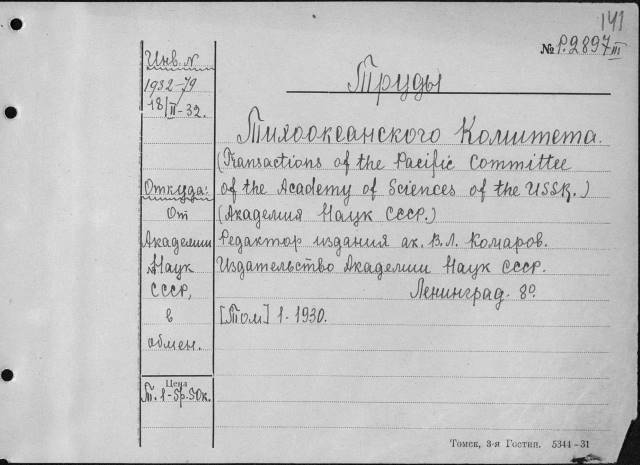 141
№ Р.2897 III
Инв. N
1932-79
18/II-32.
Откуда:
От
Академии
Наук
СССР,
в
обмен.
Цена
Т. 1-5р.50к.
Труды
Тихоокеанского Комитета.
(Transactions of the Pacific Committee
of the Academy of Sciences of the USSR.)
(Академия Наук СССР.)
Редактор издания ак. В.Л. Комаров.
Издательство Академии Наук СССР.
Ленинград. 8º.
[Том] 1. 1930.
Томск, 3-я Гостип. 5344-31